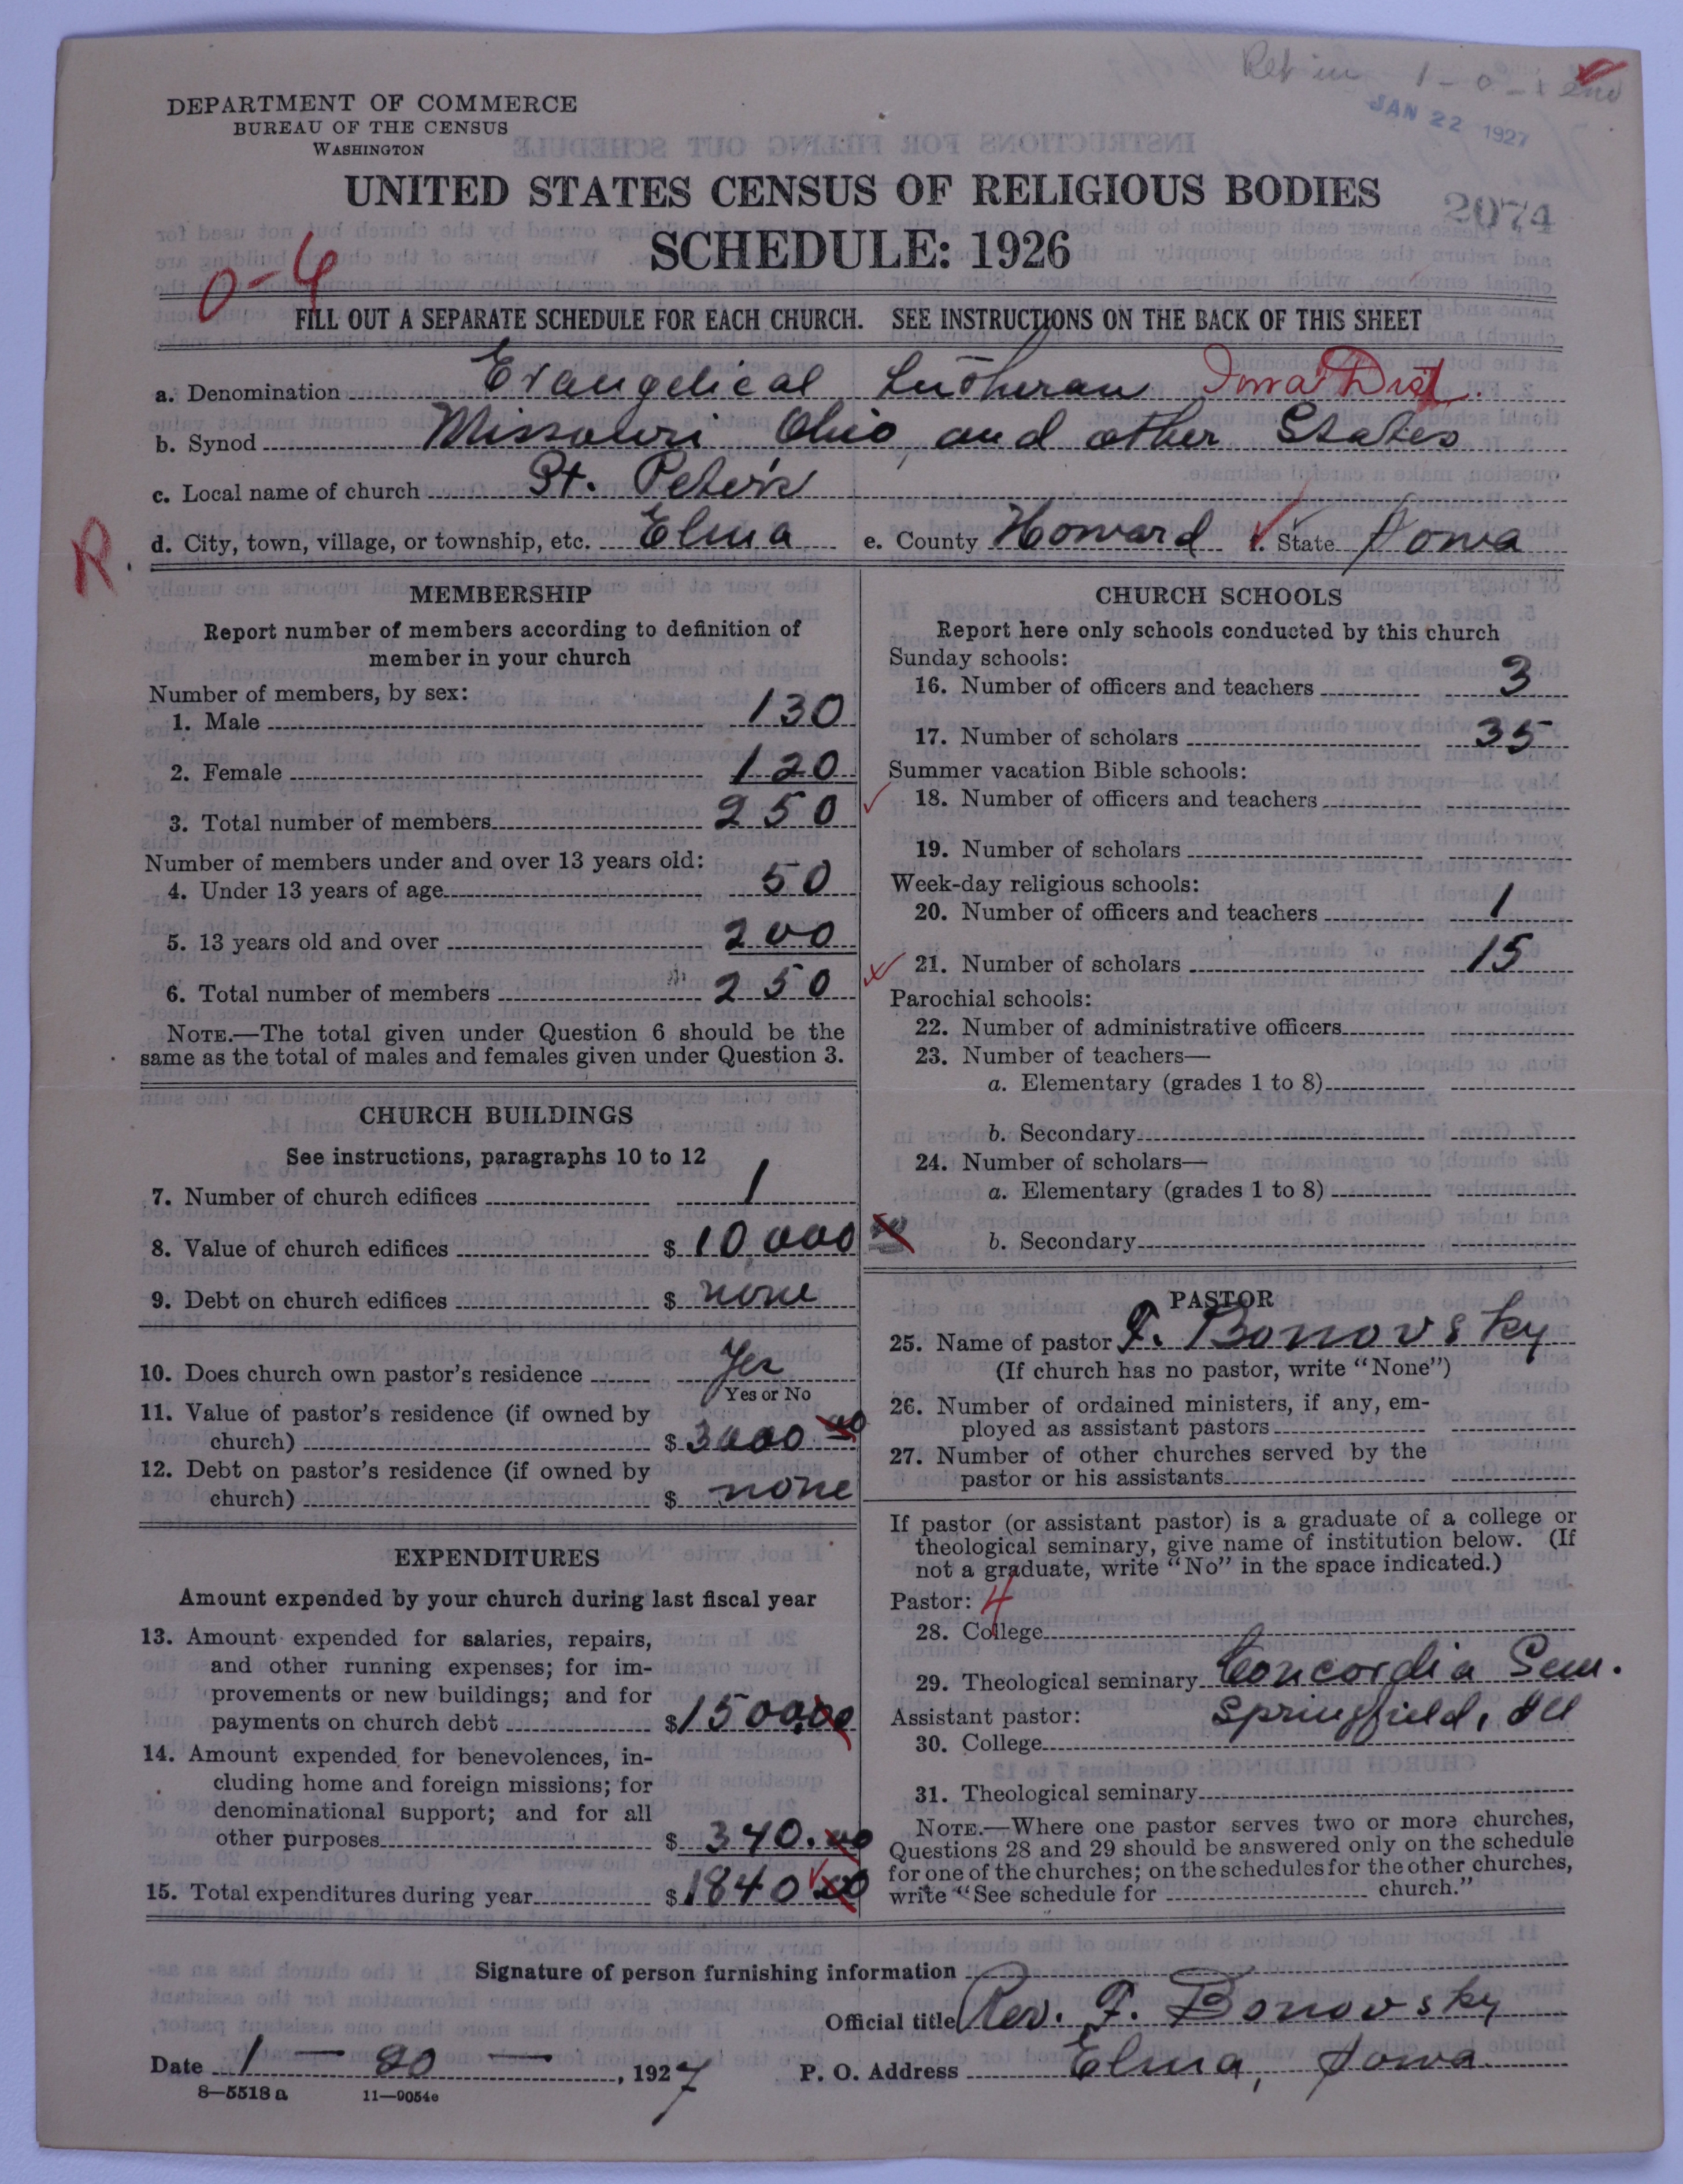 Ret in 1-0-1 end
JAN 22 1927
DEPARTMENT OF COMMERCE
BUREAU OF THE CENSUS
WASHINGTON
UNITED STATES CENSUS OF RELIGIOUS BODIES
2074
SCHEDULE: 1926
0-4
FILL OUT A SEPARATE SCHEDULE FOR EACH CHURCH. SEE INSTRUCTIONS ON THE BACK OF THIS SHEET
a. Denomination Evangelical Lutheran Iowa Dist.
b. Synod Missouri Ohio, and other States
c. Local name of church St. Peter's
R.
d. City, town, village, or township, etc. Elma e. County Howard f. State Iowa
MEMBERSHIP
Report number of members according to definition of
member in your church
Number of members, by sex:
1. Male 130
2. Female 120
3. Total number of members 250
Number of members under and over 13 years old:
4. Under 13 years of age 50
5. 13 years old and over 200
6. Total number of members 250
NOTE.—The total given under Question 6 should be the
same as the total of males and females given under Question 3.
CHURCH BUILDINGS
See instructions, paragraphs 10 to 12
7. Number of church edifices 1
8. Value of church edifices $ 10,000 00
9. Debt on church edifices $ none
10. Does church own pastor's residence Yes
Yes or No
11. Value of pastor's residence (if owned by
church) $ 3000 00
12. Debt on pastor's residence (if owned by
church) $ none
EXPENDITURES
Amount expended by your church during last fiscal year
13. Amount expended for salaries, repairs,
and other running expenses; for im-
provements or new buildings; and for
payments on church debt $ 1500.00
14. Amount expended for benevolences, in-
cluding home and foreign missions; for
denominational support; and for all
other purposes $ 340.00
15. Total expenditures during year $ 1840 00
CHURCH SCHOOLS
Report here only schools conducted by this church
Sunday schools:
16. Number of officers and teachers 3
17. Number of scholars 35
Summer vacation Bible schools:
18. Number of officers and teachers
19. Number of scholars
Week-day religious schools:
20. Number of officers and teachers 1
21. Number of scholars 15
Parochial schools:
22. Number of administrative officers
23. Number of teachers—
a. Elementary (grades 1 to 8)
b. Secondary
24. Number of scholars—
a. Elementary (grades 1 to 8)
b. Secondary
PASTOR
25. Name of pastor F. Bonovsky
(If church has no pastor, write "None")
26. Number of ordained ministers, if any, em-
ployed as assistant pastors
27. Number of other churches served by the
pastor or his assistants
If pastor (or assistant pastor) is a graduate of a college or
theological seminary, give name of institution below. (If
not a graduate, write "No" in the space indicated.)
Pastor: 4
28. College
29. Theological seminary Concordia Sem.
Springfield, Ill
Assistant pastor:
30. College
31. Theological seminary
NOTE.—Where one pastor serves two or more churches,
Questions 28 and 29 should be answered only on the schedule
for one of the churches; on the schedules for the other churches,
write "See schedule for church."
Signature of person furnishing information
Official title Rev. F. Bonovsky
Date 1 - 20 - , 1927 P. O. Address Elma, Iowa
8-5518 a 11-9054e